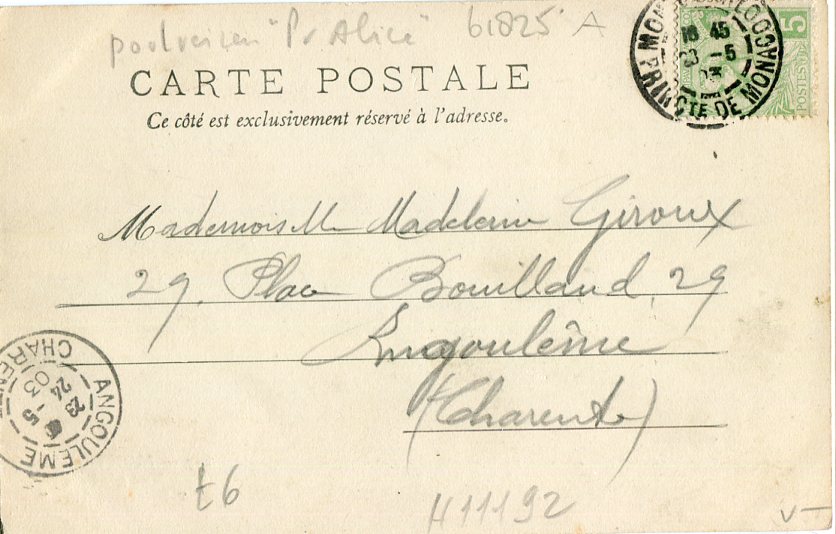 "Pr Alice" 61825 A
CARTE POSTALE
Ce côté est exclusivement réservé à l'adresse.
MONTE-CARLO PRINCTÉ DE MONACO
16 45
23 -5
03
5
POSTES
Mademoiselle Madeleine Giroux
29, Place Bouillaud, 29
Angoulême
(Charente)
ANGOULEME CHARENTE
23
24 - 5
03
t6
H11192
V-